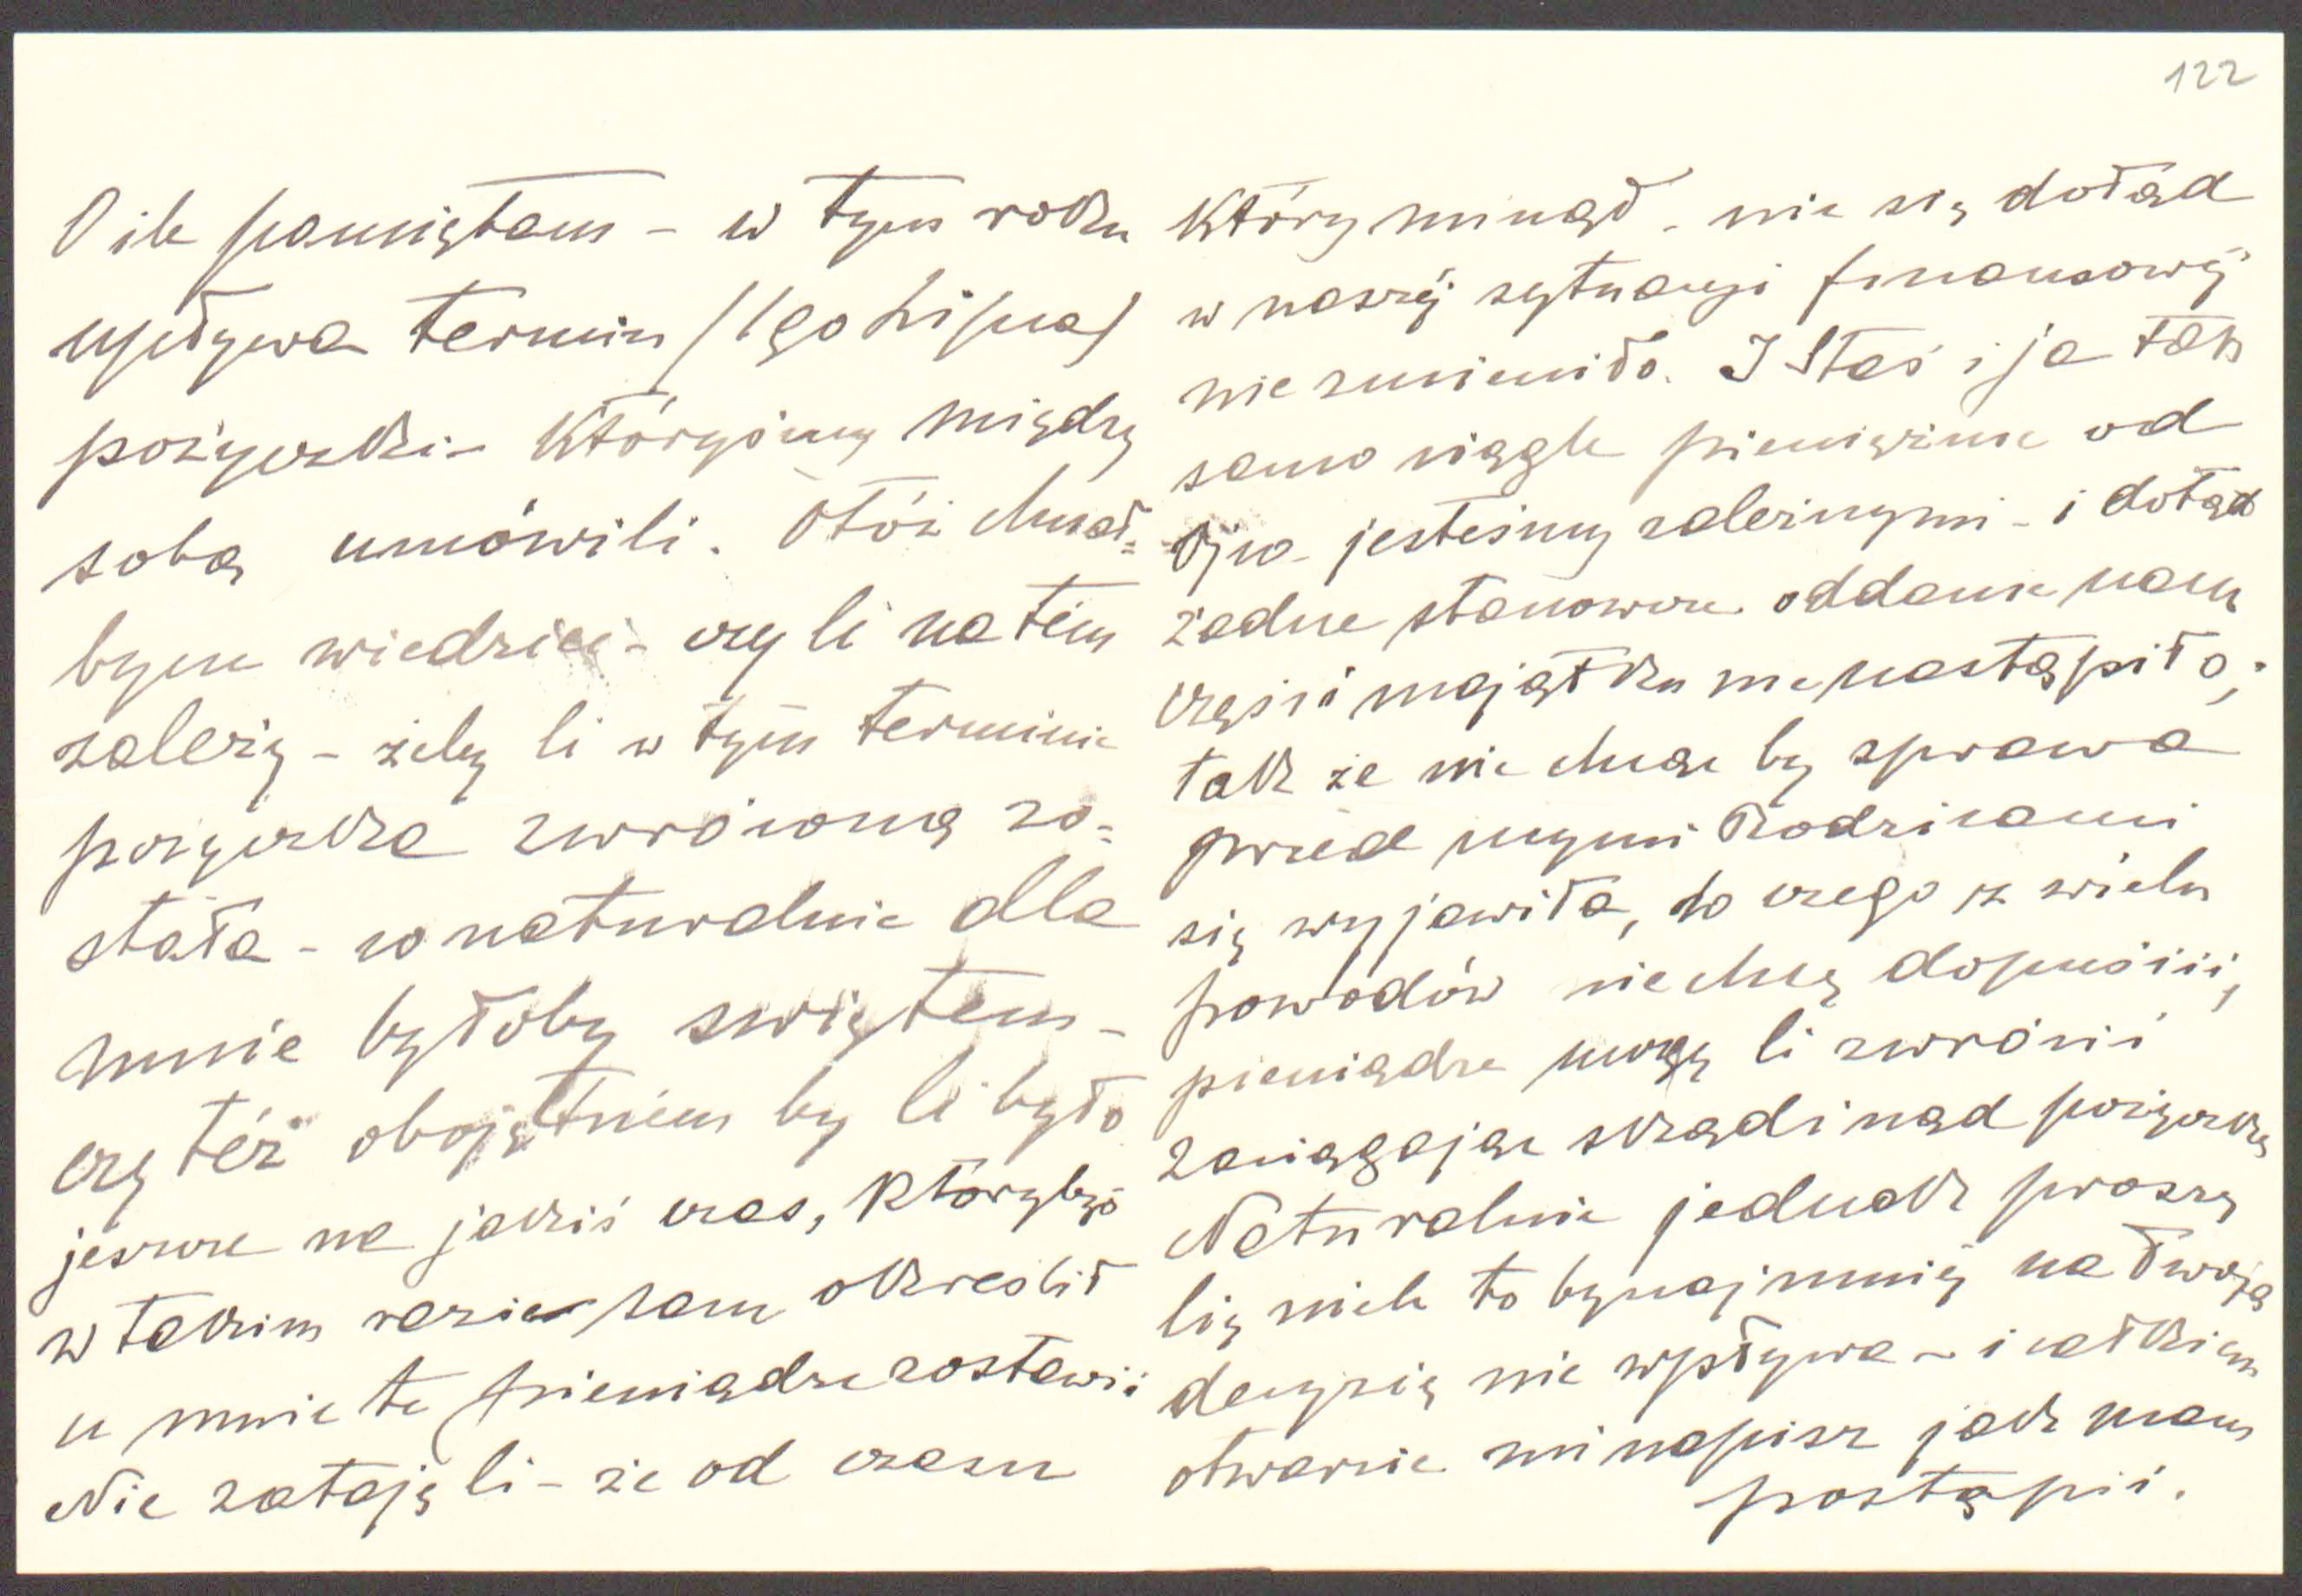 122
O ile pamiętam - w tym roku
upływa termin /1go Lipca/
pożyczki - któryśmy między
sobą umówili. Otóż chciał=
bym wiedzieć - czy Ci na tém
zależy - żeby Ci w tym terminie
pożyczka zwróconą zo=
stała - co naturalnie dla
mnie byłoby świętem -
czy téż obojętném by Ci było
jeszcze na jakiś czas, którybyś
w takim razie sam określił
u mnie te pieniądze zostawić
Nie zataję Ci - że od czasu
który minął - nic się dotąd
w naszéj sytuacyi finansowéj
nie zmieniło. I Staś i ja tak
samo ciągle pieniężnie od
Ojca jesteśmy zależnymi - i dotąd
żadne stanowcze oddanie nam
części majątku nie nastąpiło;
tak że nie chcąc by sprawa
przed mymi Rodzicami
się wyjawiła, do czego z wielu
powodów nie chcę dopuścić,
pieniądze mogę Ci zwrócić
zaciągając skądinąd pożyczkę
Naturalnie jednak proszę
Cię niech to bynajmniéj na Twoją
decyzię nie wpływa - i całkiem
otwarcie mi napisz jak mam
postąpić.